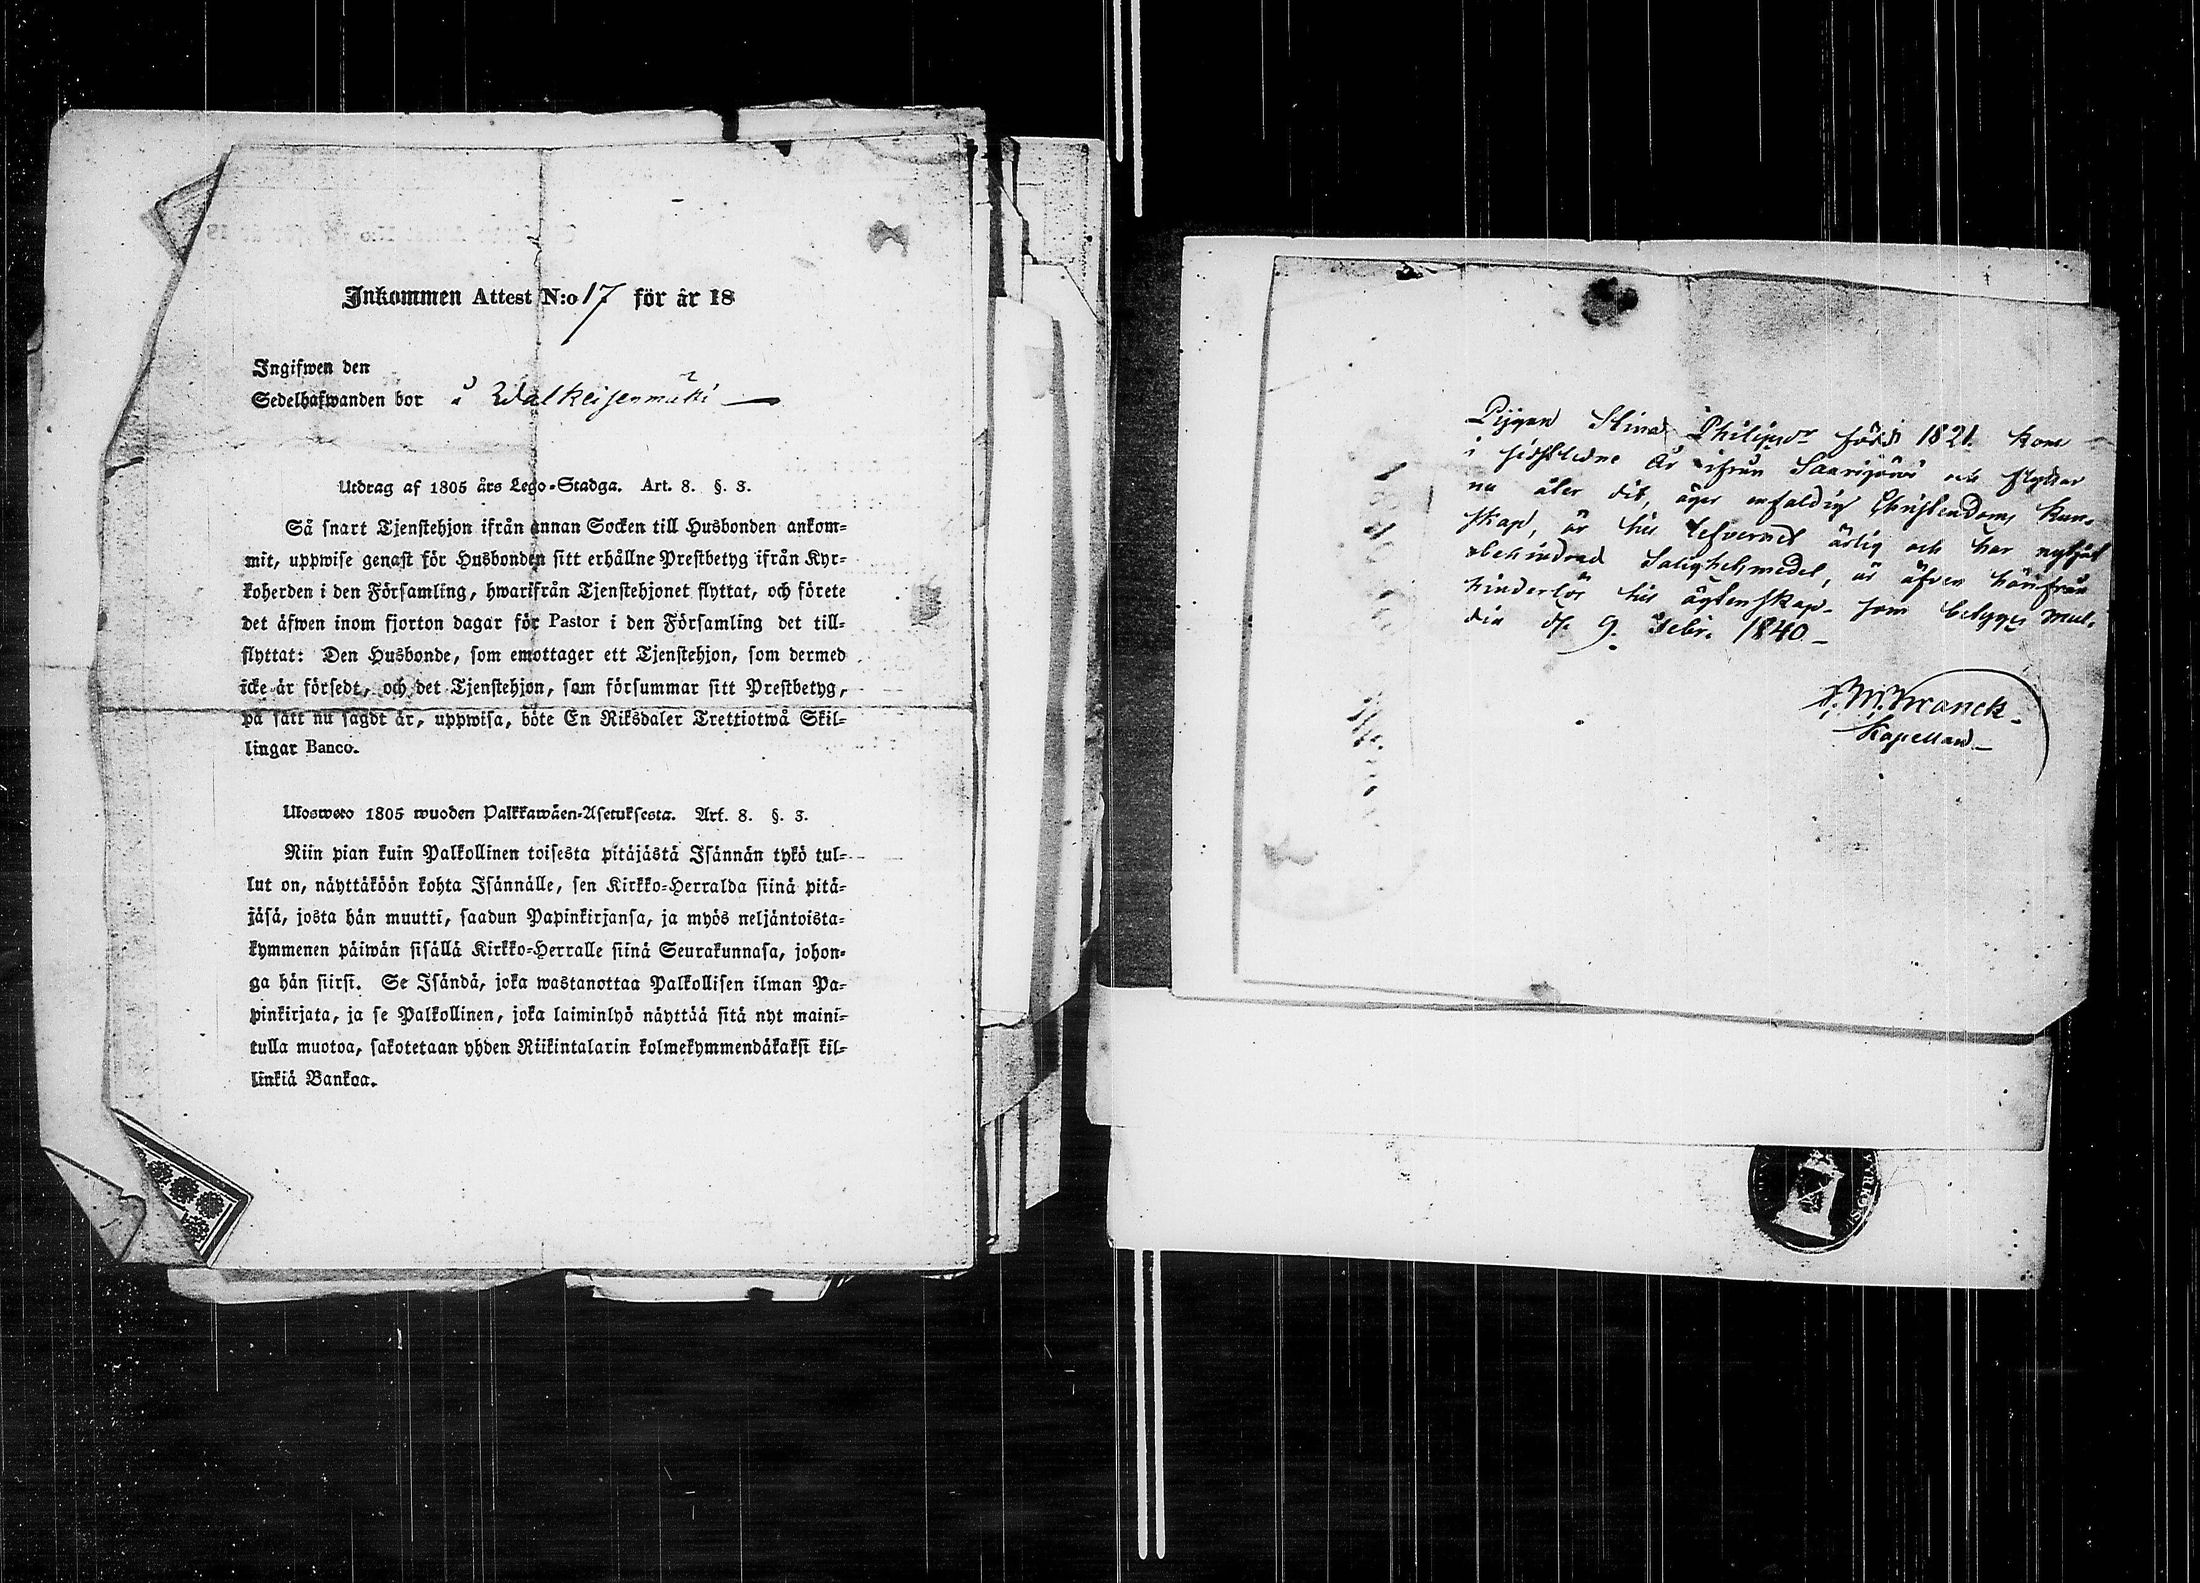 Inkommen Attest N:o 17 för år 18
Ingifwen den
Sedelhafwanden bor å Walkeisenmäki
Utdrag af 1805 års Lego-Stadga. Art. 8. §. 3.
Så snart Tjenstehjon ifrån annan Socken till Husbonden ankom-
mit, uppwise genast för Husbonden sitt erhållne Prestbetyg ifrån Kyr-
koherden i den Församling, hwarifrån Tjenstehjonet flyttat, och förete
det äfwen inom fjorton dagar för Pastor i den Församling det till-
flyttat: Den Husbonde, som emottager ett Tjenstehjon, som dermed
icke är försedt, och det Tjenstehjon, som försummar sitt Prestbetyg,
på sätt nu sagdt är, uppwisa, böte En Riksdaler Trettiotwå Skil-
lingar Banco.
Ulosweto 1805 wuoden Palkkawäen-Asetuksesta. Art. 8. §. 3.
Niin pian kuin Palkollinen toisesta pitäjästä Isännän tykö tul-
lut on, näyttäköön kohta Isännälle, sen Kirkko-Herralda siinä pitä-
jäsä, josta hän muutti, saadun Papinkirjansa, ja myös neljäntoista-
kymmenen päiwän sisällä Kirkko-Herralle siinä Seurakunnasa, johon-
ga hän siirsi. Se Isändä, joka wastanottaa Palkollisen ilman Pa-
pinkirjata, ja se Palkollinen, joka laiminlyö näyttää sitä nyt maini-
tulla muotoa, sakotetaan yhden Riikintalarin kolmekymmendäkaksi kil-
linkiä Bankoa.
Pigan Stina Philipsdr född 1821. kom
i sidstledne År ifrån Saarijärvi och flyttar
nu åter dit, äger enfaldig Christendoms kun-
skap, är till lefvernet ärlig och har nyttjat
obehindrad Salighetsmedel, är äfven härifrån
hinderlös till ägtenskap. som betygas
d. 9. Febr. 1840
M. Wranck
Kapellan